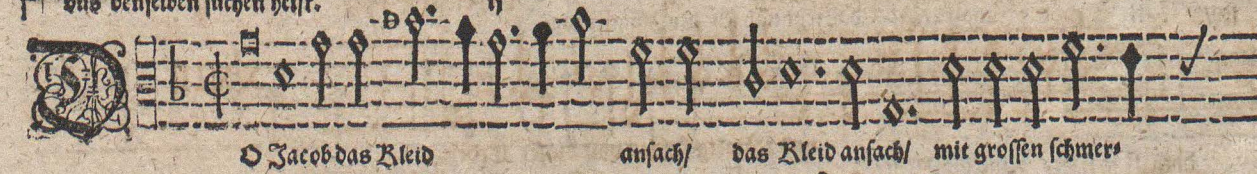 das denselben suchen heist. ij
DO Jacob das Kleid ansach/ das Kleid ansach/ mit grossen schmer⸗